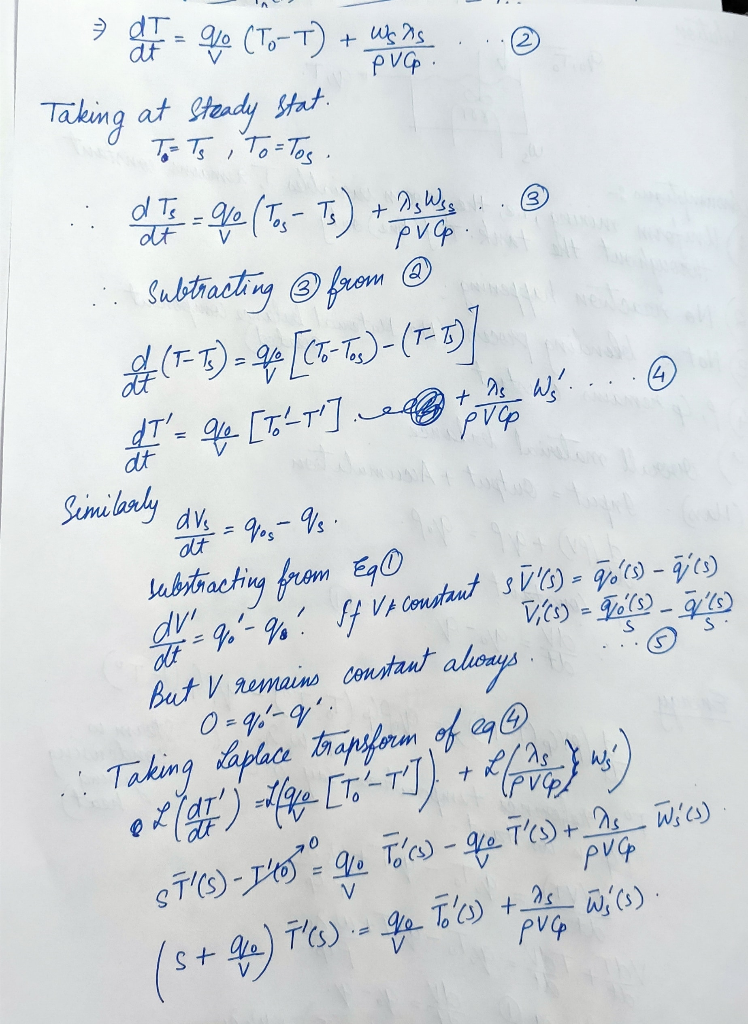 ⇒ dT/dt = q₀/V (T₀-T) + Ws λs/ρVCp. ... ②
Taking at Steady Stat.
T = Ts , To = Tos .
∴ dTs/dt = q₀/V (Tos - Ts) + λs Wss/ρVCp. .. ③
∴ Subtracting ③ from ②
d/dt (T-Ts) = q₀/V [(To-Tos) - (T-Ts)]
dT'/dt = q₀/V [To'-T'] . + λs/ρVCp Ws'. .... ④
Similarly dVs/dt = qos - qs .
substracting from Eq ①
dV'/dt = qo' - qo' . If V ≠ constant s V̄'(s) = q̄o'(s) - q̄'(s)
V̄'(s) = q̄o'(s)/s - q̄'(s)/s. ... ⑤
But V remains constant always .
0 = qo' - q' .
∴ Taking Laplace transform of eq ④
L(dT'/dt) = L(q₀/V [To'-T']) + L(λs/ρVCp } Ws')
s T̄'(s) - T'(0) 0 = q₀/V T̄o'(s) - q₀/V T̄'(s) + λs/ρVCp W̄s'(s)
(s + q₀/V) T̄'(s) = q₀/V T̄o'(s) + λs/ρVCp W̄s'(s) .